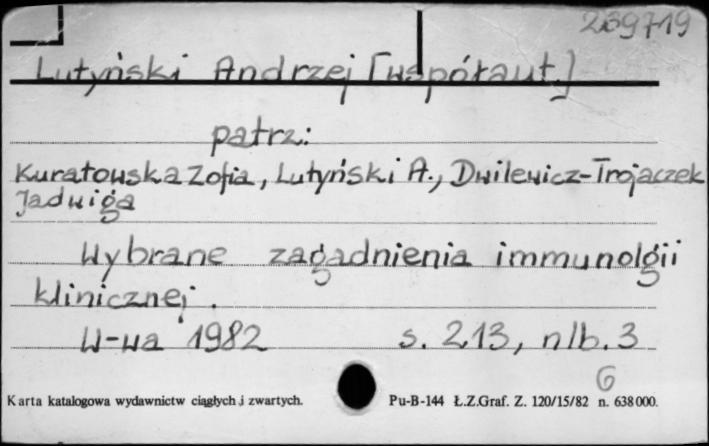 239719
Lutyński Andrzej [współaut.]
patrz:
Kuratowska Zofia, Lutyński A., Dwilewicz-Trojaczek
Jadwiga
Wybrane zagadnienia immunolgii
klinicznej.
W-wa 1982 s. 213, nlb. 3
6
Karta katalogowa wydawnictw ciągłych i zwartych. Pu-B-144 Ł.Z.Graf. Z. 120/15/82 n. 638 000.